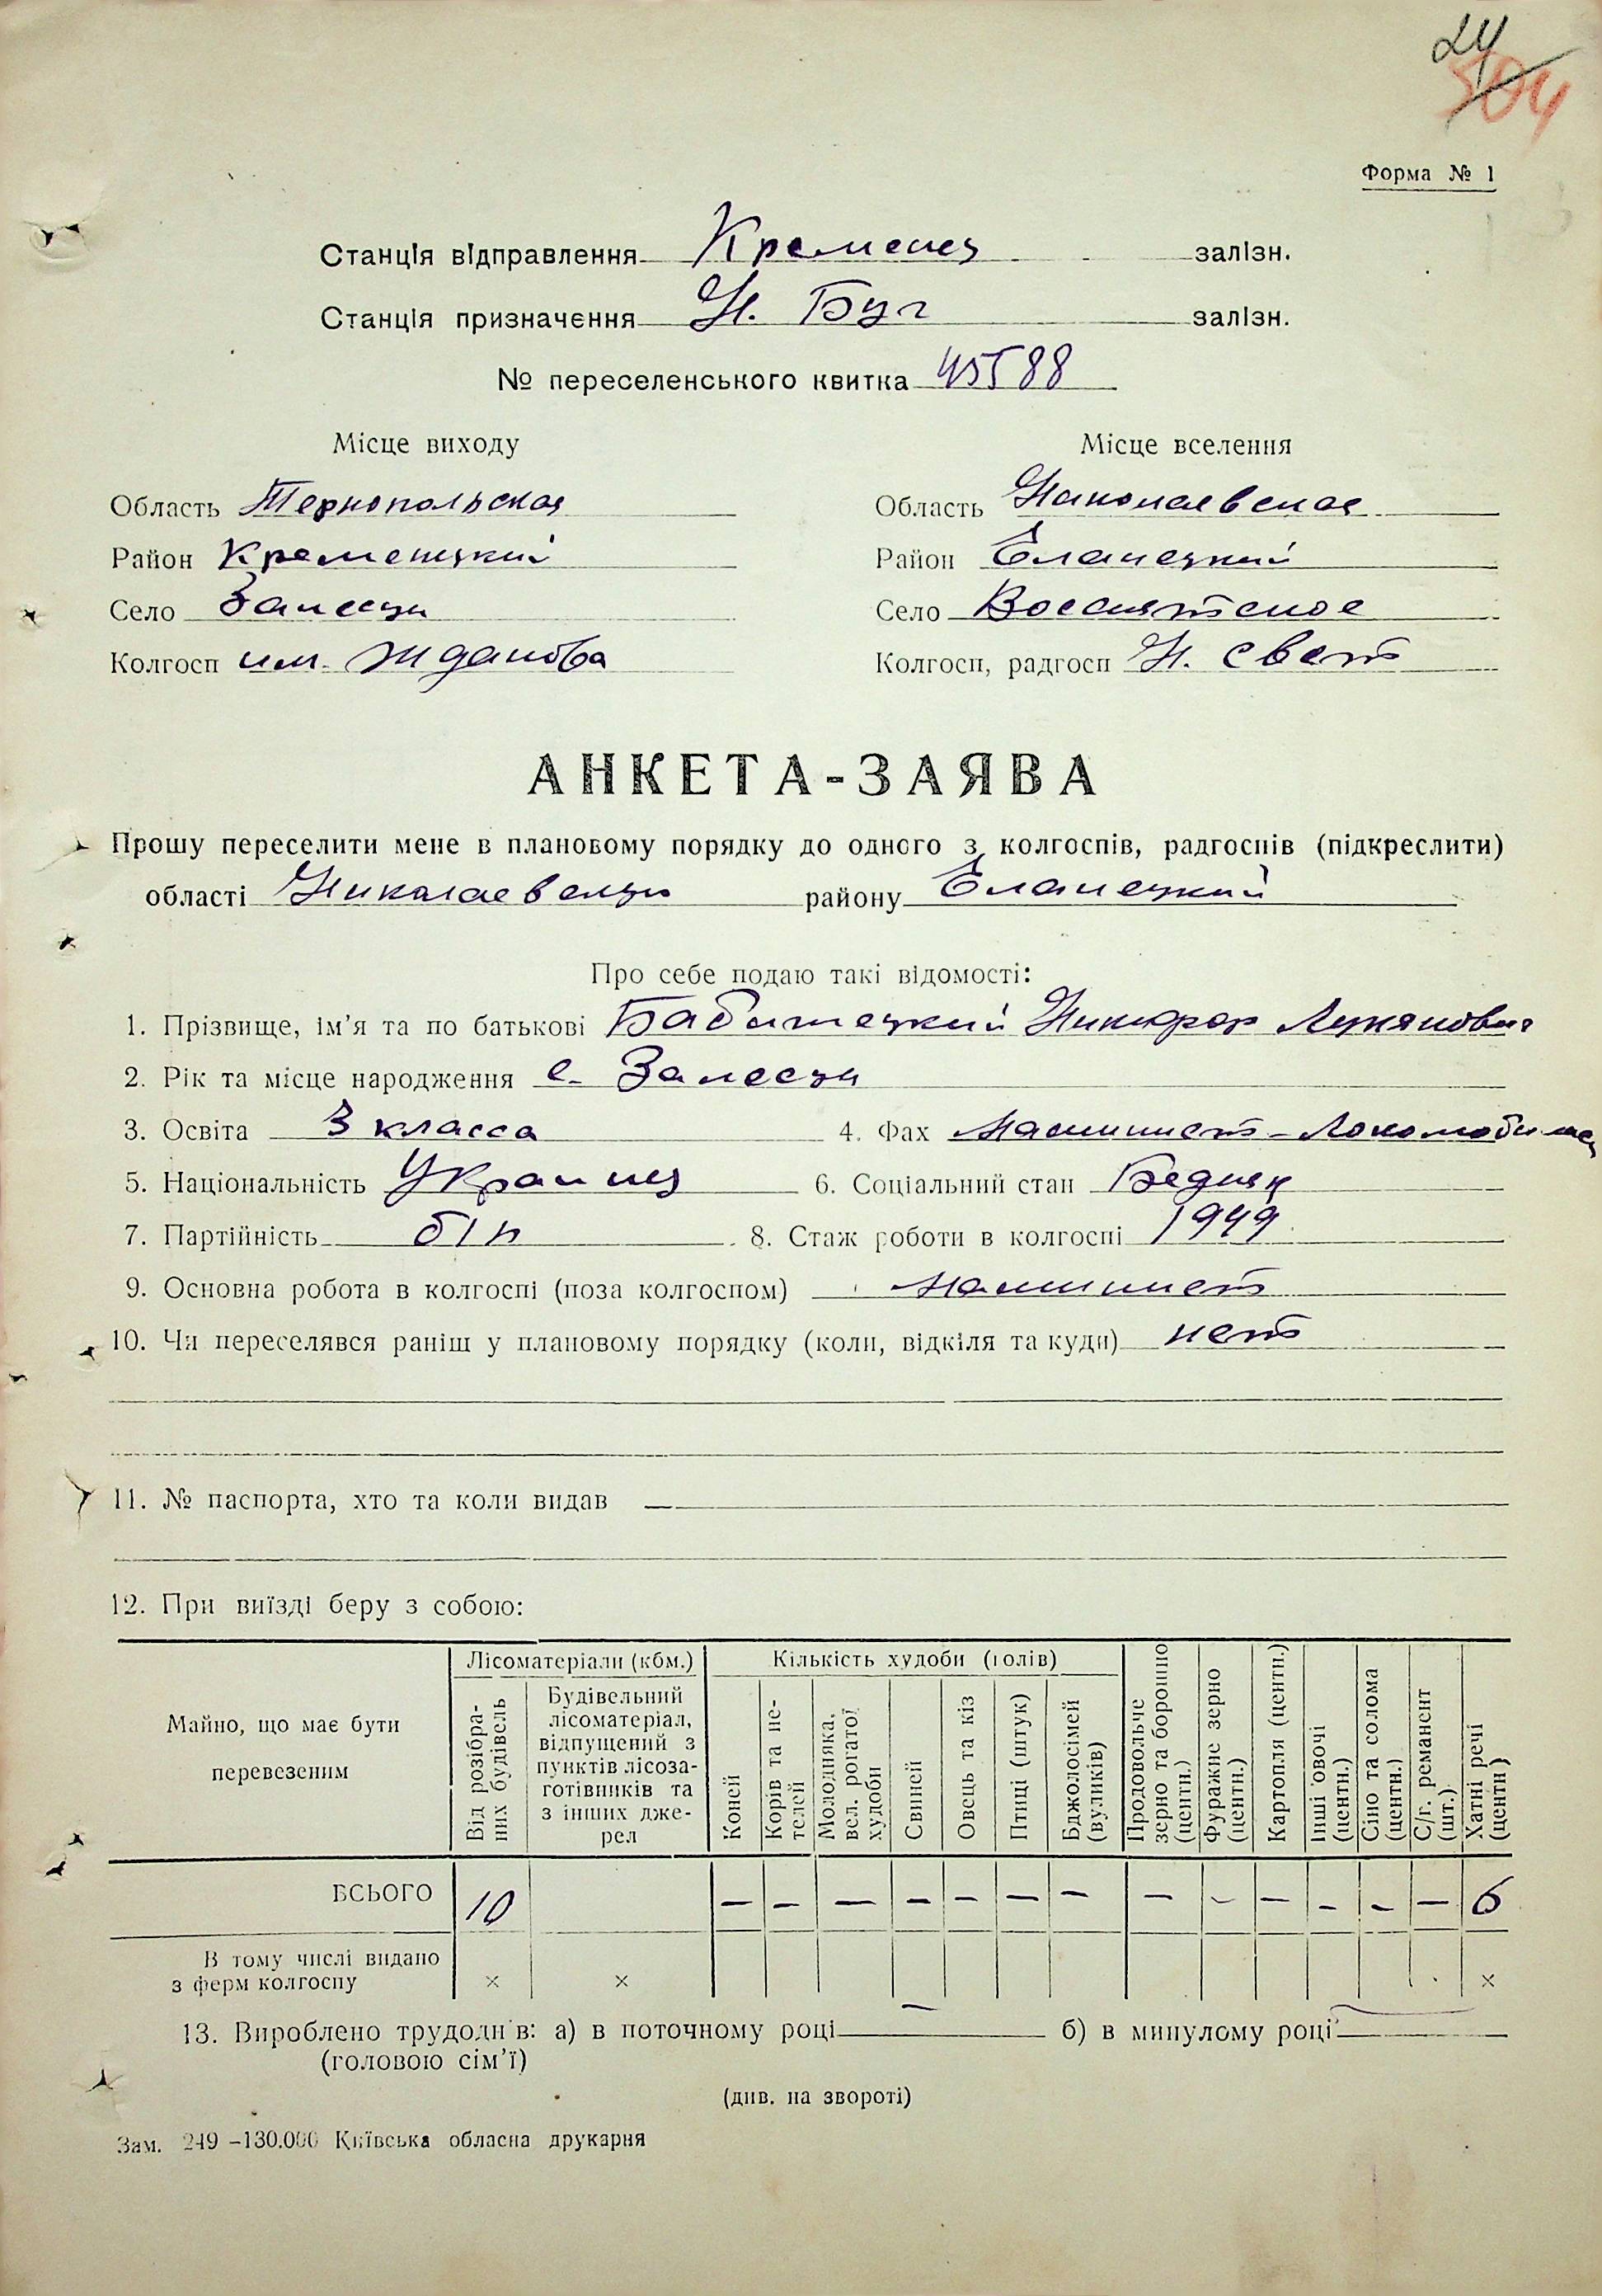 24
504
Форма № 1
Станція відправлення Кременец залізн.
Станція призначення Н. Буг залізн.
№ переселенського квитка 45588
Місце виходу Місце вселення
Область Тернопольская Область Николаевская
Район Кременецкий Район Еланецкий
Село Залесцы Село Воссиятское
Колгосп им. Жданова Колгосп, радгосп Н. свет
АНКЕТА-ЗАЯВА
Прошу переселити мене в плановому порядку до одного з колгоспів, радгоспів (підкреслити)
області Николаевску району Еланецкий
Про себе подаю такі відомості:
1. Прізвище, ім'я та по батькові Никифор Лукянович
2. Рік та місце народження с. Залесцы
3. Освіта 3 класса 4. Фах Машинист-Локомобиля
5. Національність Украинец 6. Соціальний стан Бедняк
7. Партійність б/п 8. Стаж роботи в колгоспі 1949
9. Основна робота в колгоспі (поза колгоспом) машинист
10. Чи переселявся раніш у плановому порядку (коли, відкіля та куди) нет
11. № паспорта, хто та коли видав —
12. При виїзді беру з собою:
Майно, що має бути перевезеним
Лісоматеріали (кбм.)
Від розібраних будівель
Будівельний лісоматеріал, відпущений з пунктів лісозаготівників та з інших джерел
Кількість худоби (голів)
Коней
Корів та нетелей
Молодняка, вел. рогатої худоби
Свиней
Овець та кіз
Птиці (штук)
Бджолосімей (вуликів)
Продовольче зерно та борошно (центн.)
Фуражне зерно (центн.)
Картопля (центн.)
Інші овочі (центн.)
Сіно та солома (центн.)
С/г. реманент (шт.)
Хатні речі (центн.)
ВСЬОГО 10 — — — — — — — — — — — — — 6
В тому числі видано з ферм колгоспу × × ×
13. Вироблено трудоднів: а) в поточному році — б) в минулому році —
(головою сім'ї)
(див. на звороті)
Зам. 249 –130.000 Київська обласна друкарня